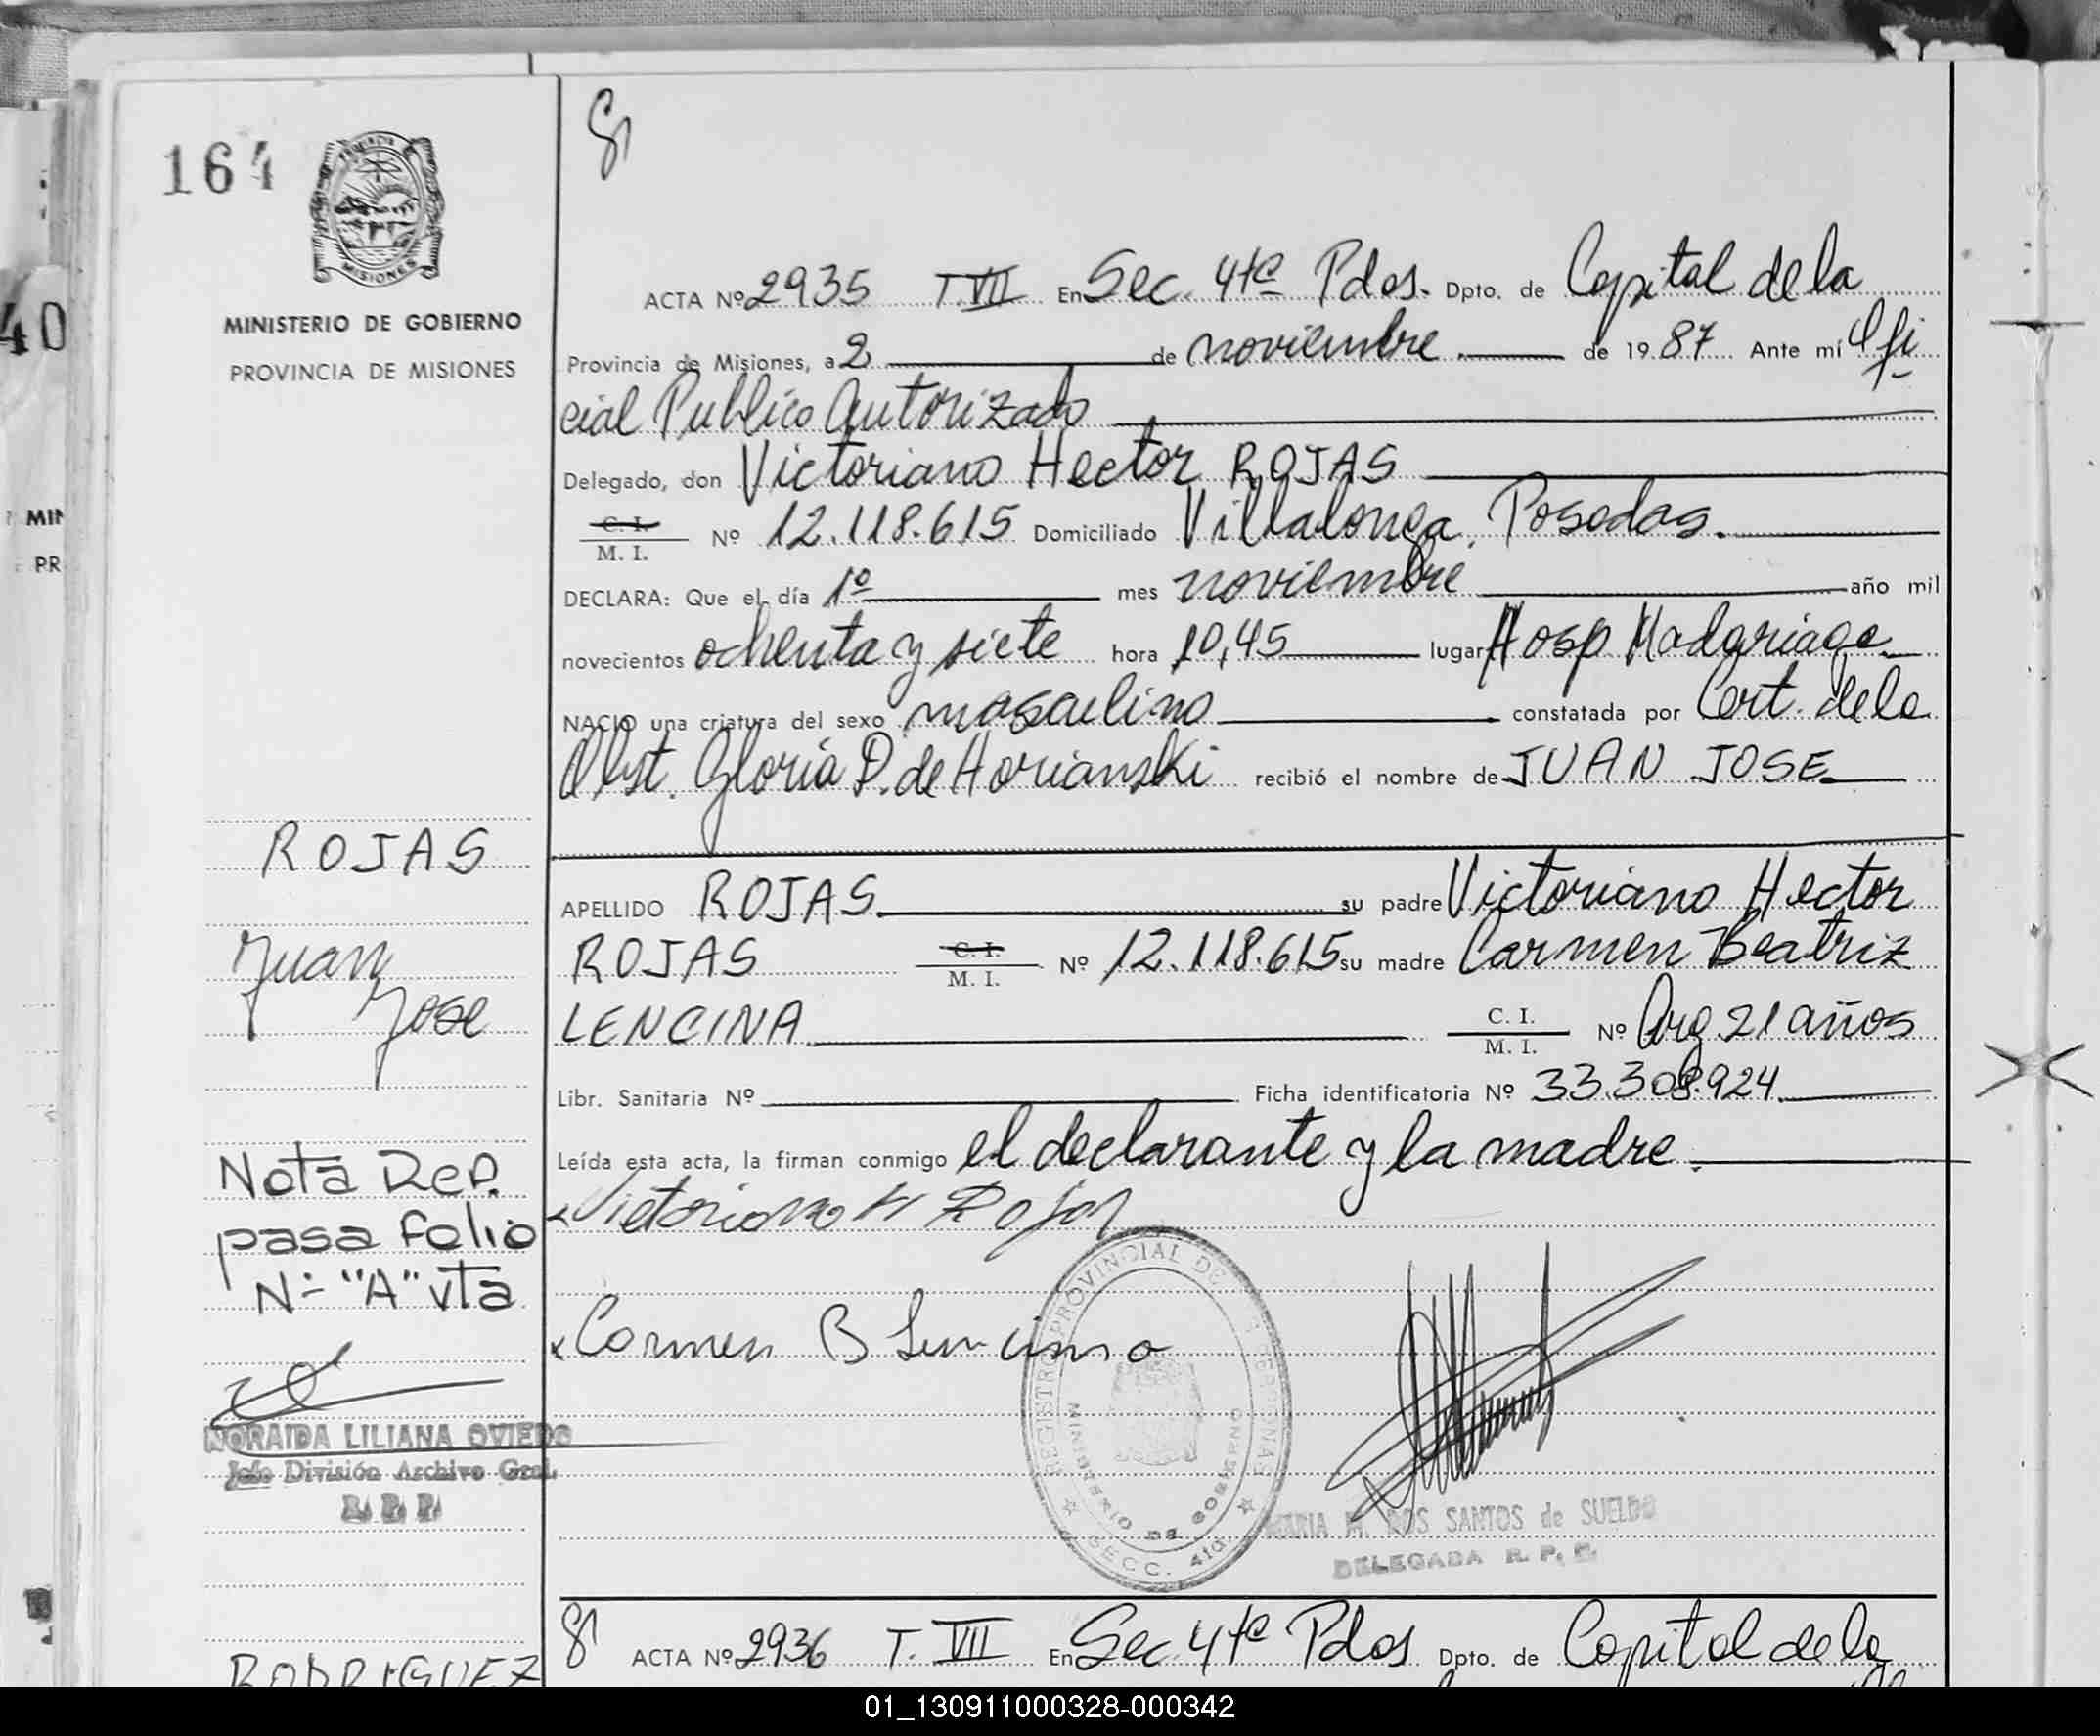 164
PROVINCIA DE
MISIONES
MINISTERIO DE GOBIERNO
PROVINCIA DE MISIONES
40
MIN
PR
ACTA Nº 2935 T. VII En Sec. 4ta Pdas. Dpto. de Capital de la
Provincia de Misiones, a 2 de noviembre de 19 87 Ante mí Ofi
cial Publico Autorizado
Delegado, don Victoriano Hector ROJAS
C. I.
M. I. Nº 12.118.615 Domiciliado Villalonga. Posadas.
DECLARA: Que el día 1º mes noviembre año mil
novecientos ochenta y siete hora 10,45 lugar Hosp Madariaga
NACIO una criatura del sexo masculino constatada por Cert. de la
Obst. Gloria P. de Horianski recibió el nombre de JUAN JOSE
ROJAS
Juan
Jose
APELLIDO ROJAS su padre Victoriano Hector
ROJAS C. I. M. I. Nº 12.118.615 su madre Carmen Beatriz
LENCINA C. I. M. I. Nº Arg 21 años
Libr. Sanitaria Nº Ficha identificatoria Nº 33.308.924
Leída esta acta, la firman conmigo el declarante y la madre.
Nota Rep.
pasa folio
Nº "A" vta
Victoriano H Rojas
Carmen B Lencina
NORAIDA LILIANA OVIEDO
Jefe División Archivo Gral.
R. P. P.
REGISTRO PROVINCIAL DE
MINISTERIO DE GOBIERNO
SECC. 4ta.
MARIA M. DOS SANTOS de SUELDO
DELEGADA R. P. P.
RODRIGUEZ
ACTA Nº 2936 T. VII En Sec. 4ta Pdas Dpto. de Capital de la
01_130911000328-000342